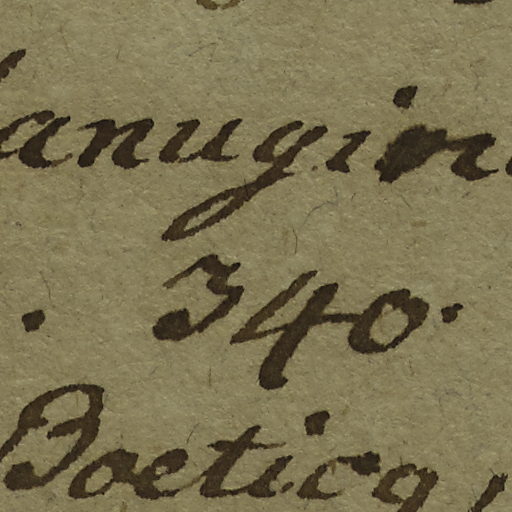 lanugin
. 340.
Boetica,